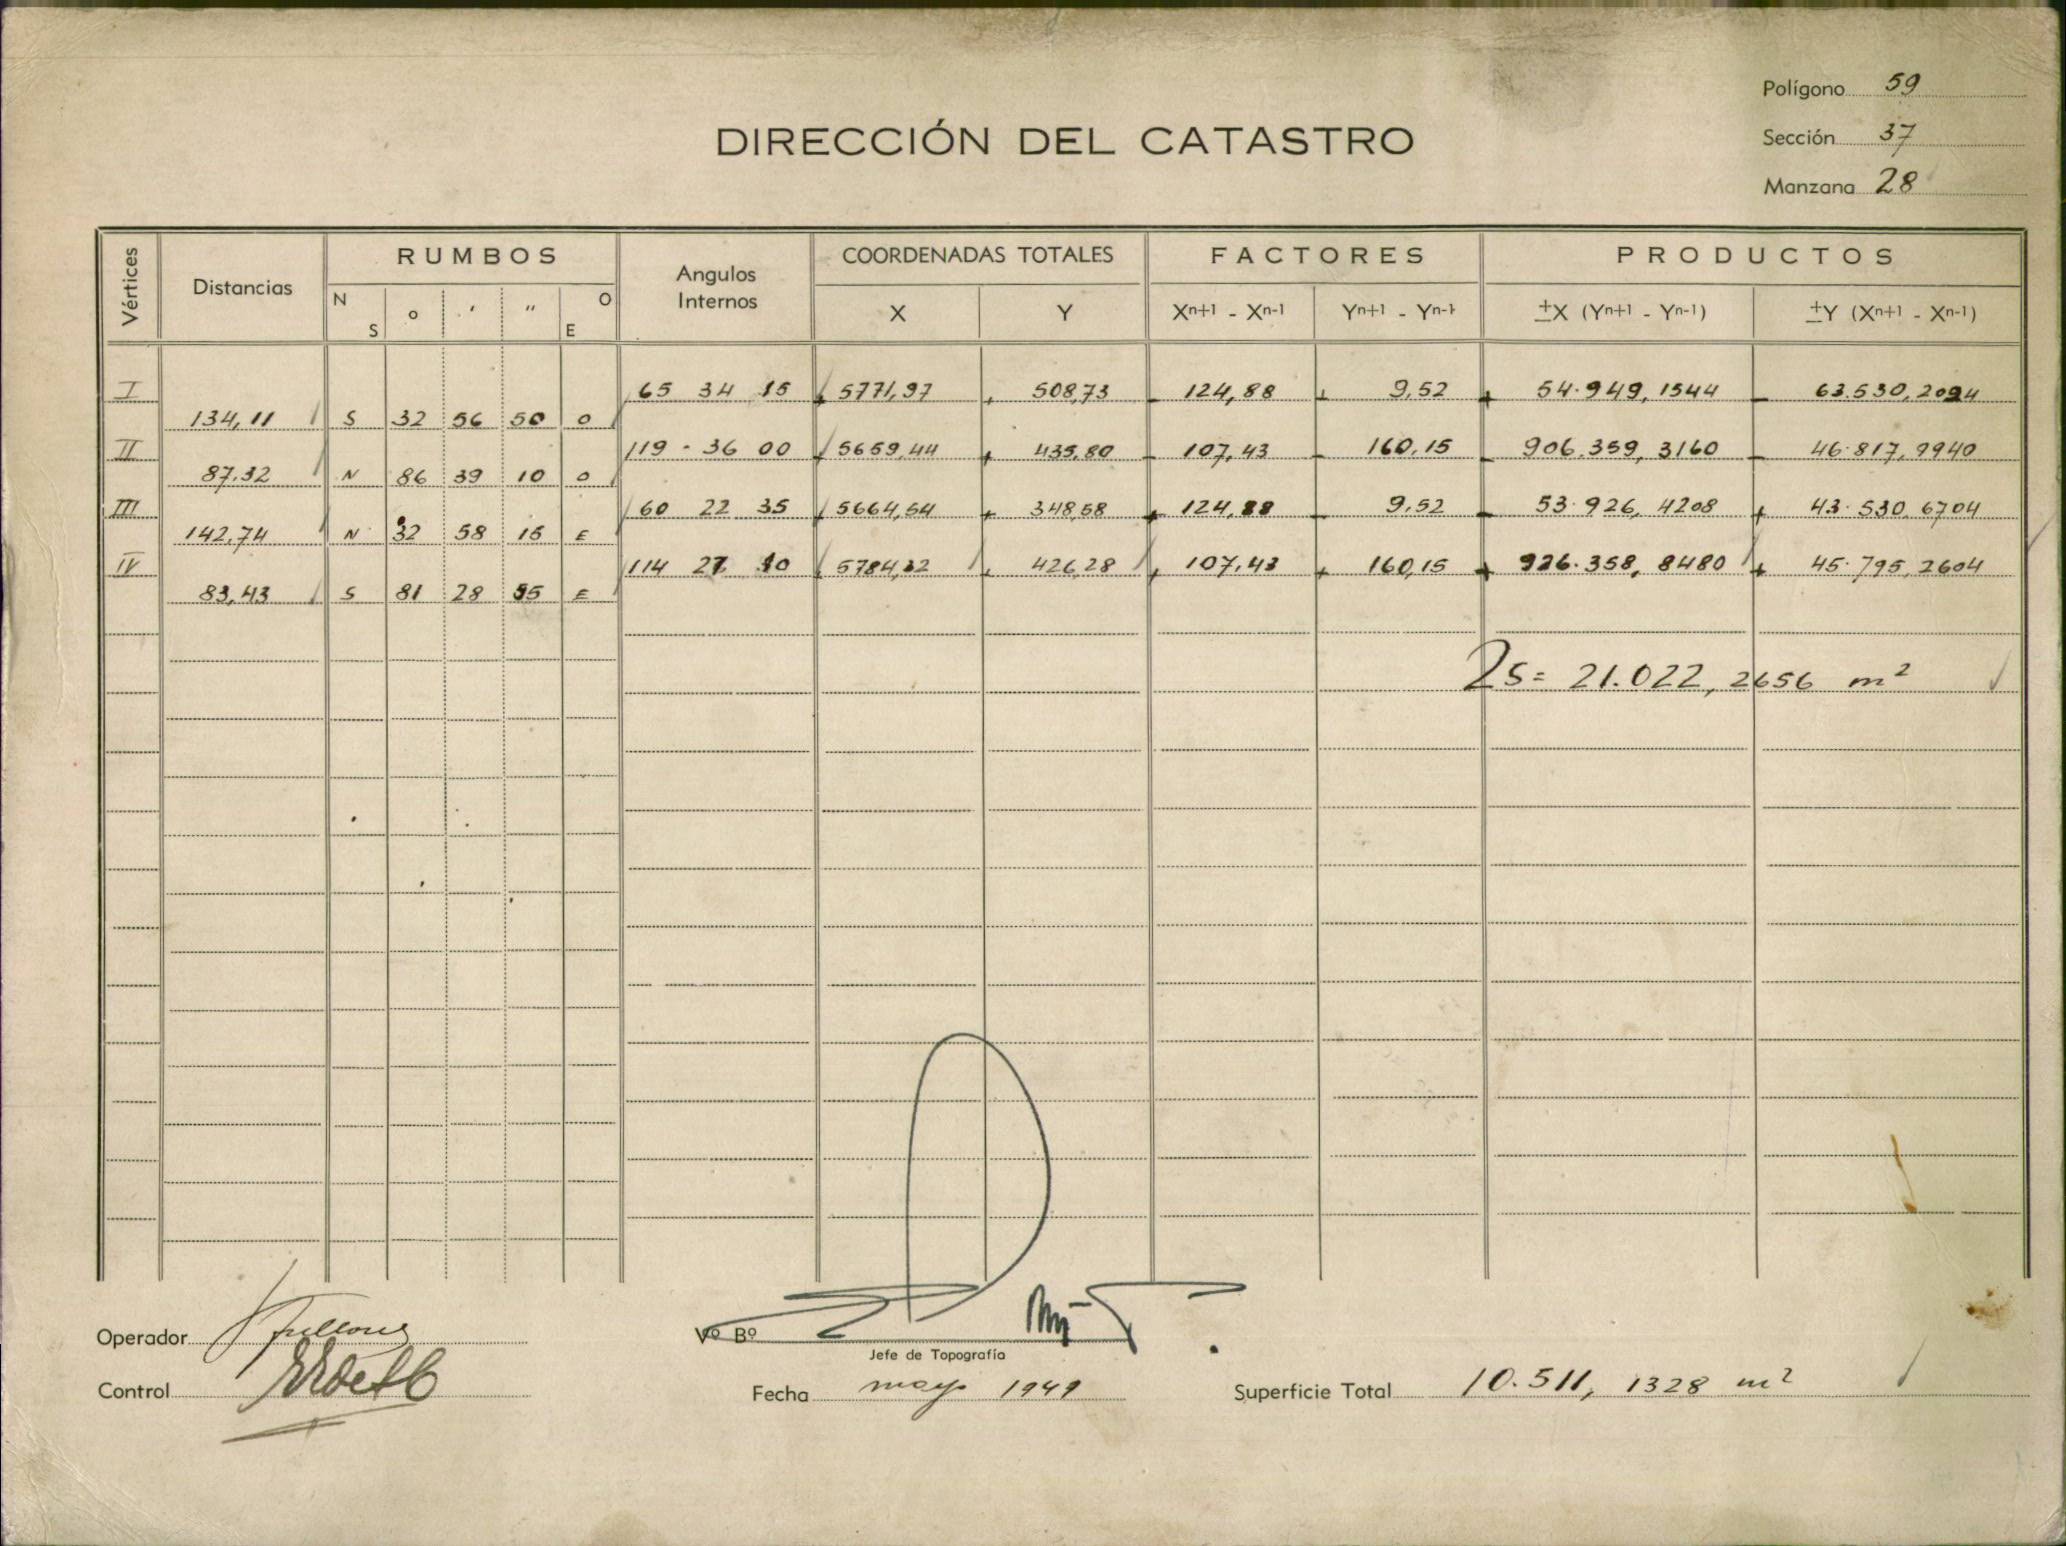 Polígono 59
DIRECCIÓN DEL CATASTRO
Sección 37
Manzana 28
Vértices Distancias RUMBOS Angulos Internos COORDENADAS TOTALES FACTORES PRODUCTOS
N S o ' '' O E X Y Xn+1 - Xn-1 Yn+1 - Yn-1 ±X (Yn+1 - Yn-1) ±Y (Xn+1 - Xn-1)
I 65 34 15 + 5771,97 + 508,73 - 124,88 + 9,52 + 54.949,1544 - 63.530,2024
134,11 S 32 56 50 O
II 119 - 36 00 + 5659,44 + 435,80 - 107,43 - 160,15 - 906.359,3160 - 46.817,9940
87,32 N 86 39 10 O
III 60 22 35 + 5664,54 + 348,58 + 124,88 - 9,52 - 53.926,4208 + 43.530,6704
142,74 N 32 58 15 E
IV 114 27 10 + 5784,32 + 426,28 + 107,43 + 160,15 + 926.358,8480 + 45.795,2604
83,43 S 81 28 55 E
2S = 21.022,2656 m²
Operador
Vº Bº
Jefe de Topografía
Control
Fecha mayo 1949
Superficie Total 10.511,1328 m²